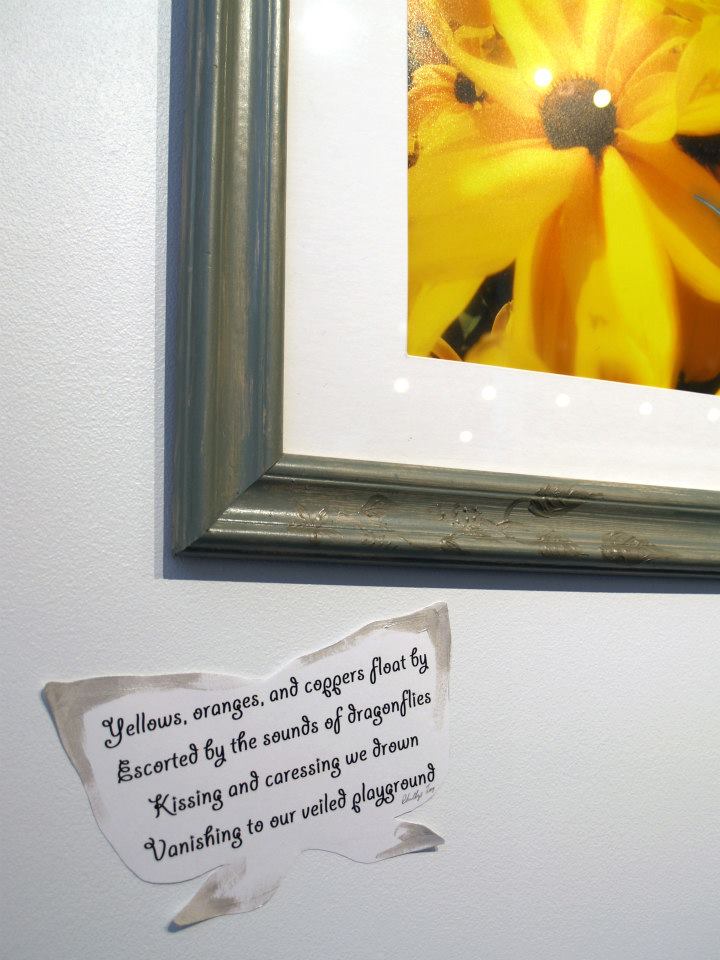 Yellows, oranges, and coppers float by
Escorted by the sounds of dragonflies
Kissing and caressing we drown
Vanishing to our veiled playground